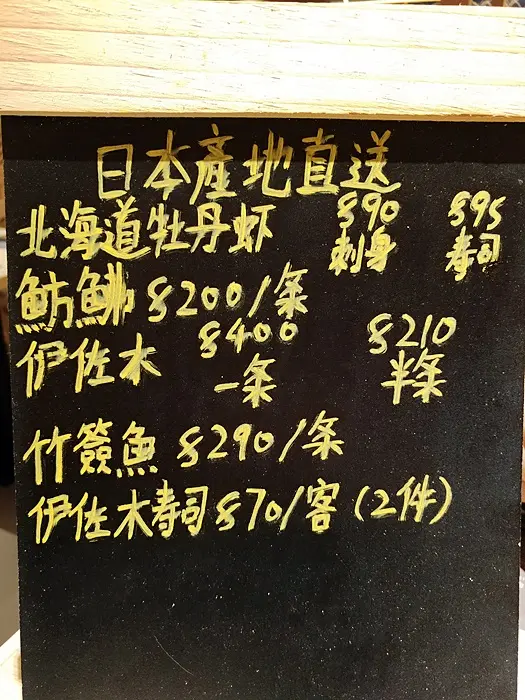 日本產地直送
北海道牡丹虾 $90 $95
刺身 寿司
魴鮄 $200/条
伊佐木 $400 $210
一条 半条
竹簽魚 $290/条
伊佐木寿司 $70/客(2件)